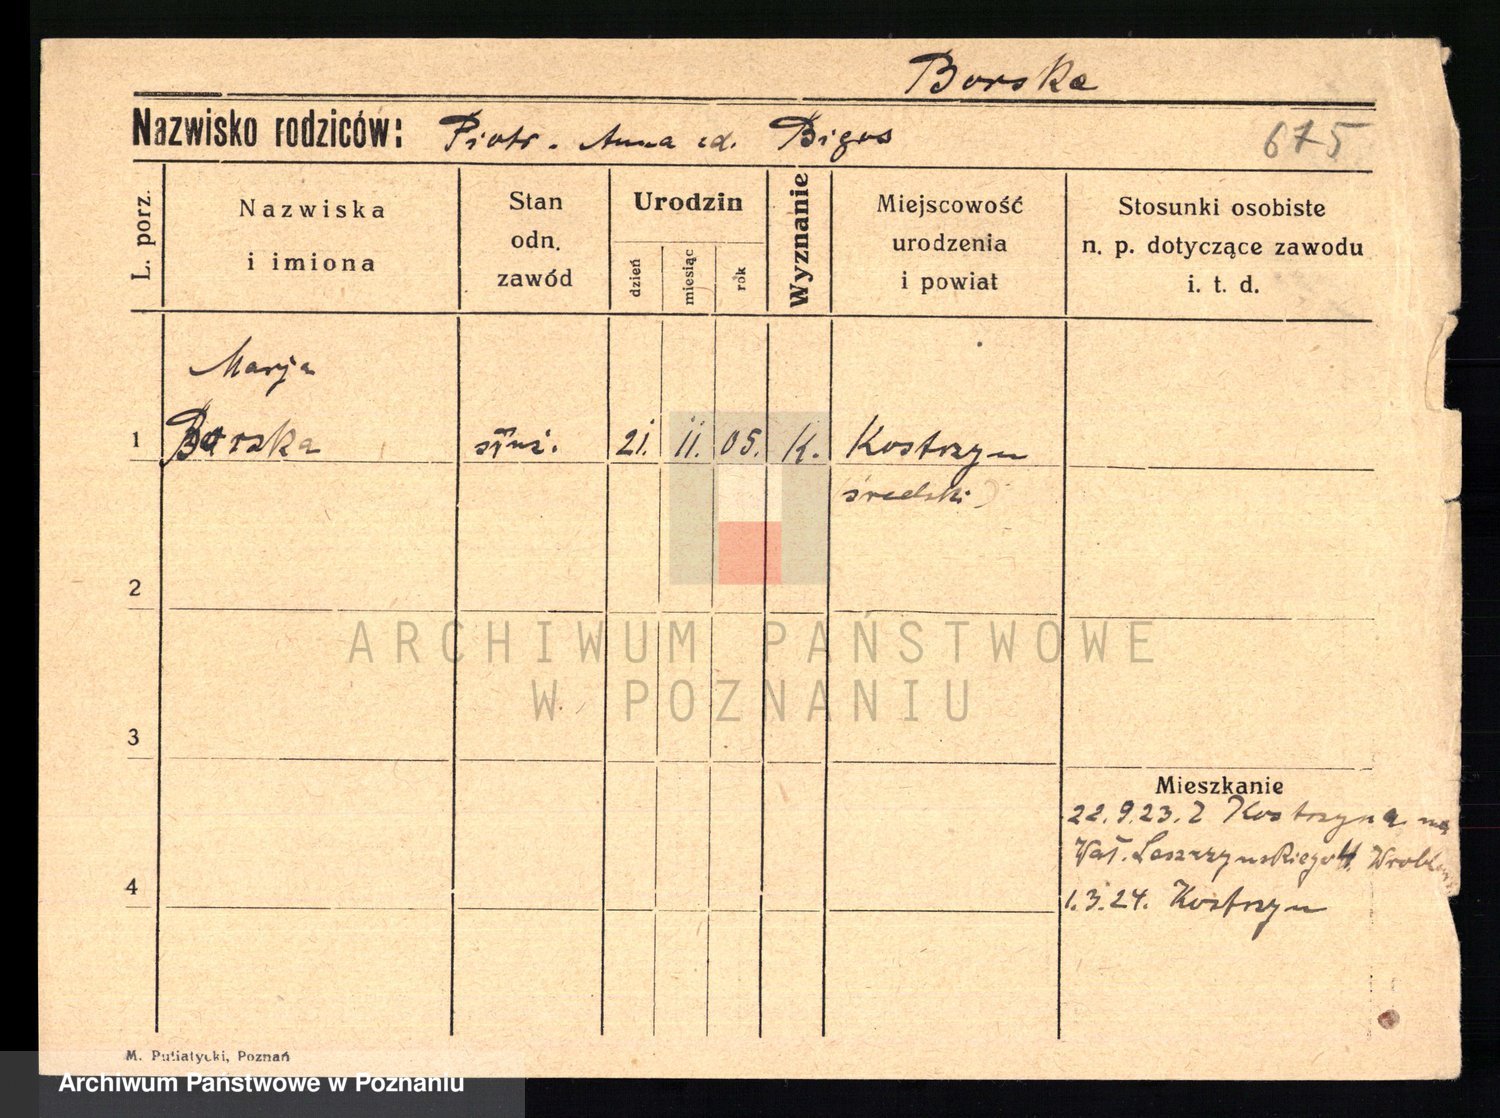 Borska
Nazwisko rodziców: Piotr - Anna zd. Bigos
675
L. porz.
Nazwiska
i imiona
Stan
odn.
zawód
Urodzin
dzień
miesiąc
rok
Wyznanie
Miejscowość
urodzenia
i powiat
Stosunki osobiste
n. p. dotyczące zawodu
i. t. d.
Marja
1 Borska służ. 21. 11. 05. K. Kostrzyn
średzki
2
ARCHIWUM PAŃSTWOWE
W POZNANIU
3
Mieszkanie
22.9.23. Z Kostrzyna na
Wał. Leszczyńskiego
4
1.3.24. Kostrzyn
M. Putiatycki, Poznań
Archiwum Państwowe w Poznaniu